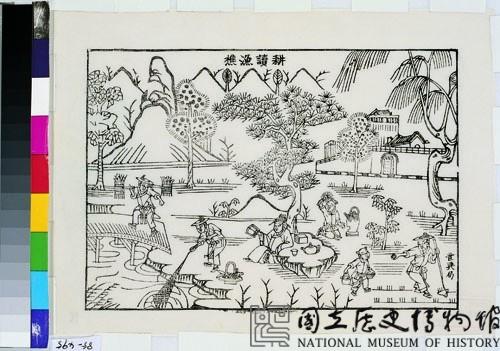 耕讀漁樵
國立歷史博物館
NATIONAL MUSEUM OF HISTORY